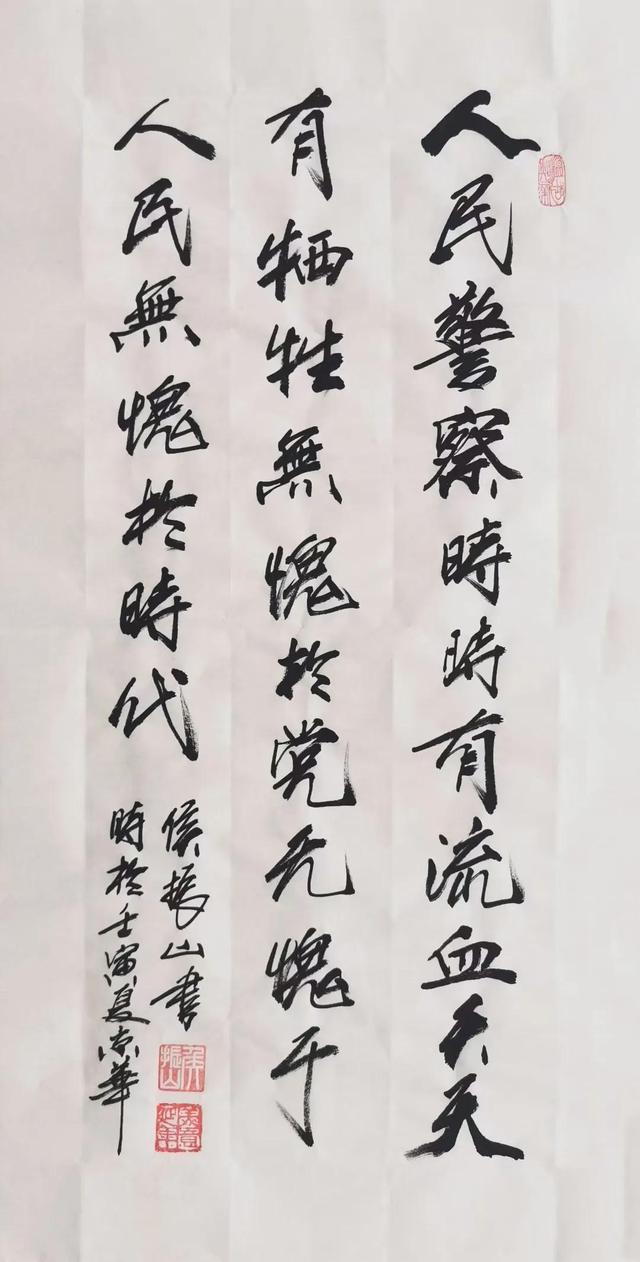 人民警察時時有流血天天
有牺牲無愧於党无愧于
人民無愧於時代
侯振山書
時於壬寅夏京華
侯振山